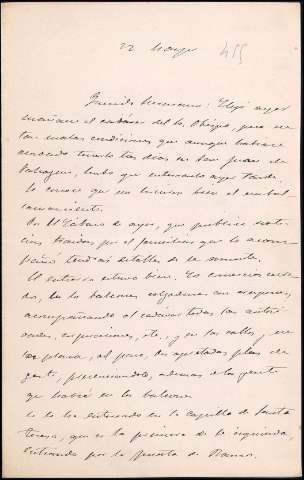 22 Mayo 455
Querido hermano: Llegó ayer
mañana el cadáver del Sr. Obispo, pero en
tan malas condiciones que aunque
tenerlo los días en San Juan de
hubo que enterrarlo ayer tarde.
Se conoce que no hicieron bien el embal-
samamiento.
En El Tábano de ayer, que publica noti-
cias traídas por el familiar que lo acom-
pañó tendrás detalles de su muerte.
El entierro estuvo bien. El comercio cerra-
do, los balcones colgaduras con crespones,
acompañando al cadáver todas las autori-
dades, corporaciones, etc., y en las calles, en
las plazas, al paso, en apretadas filas de
gente, presenciándolo, además de la gente
que había en los balcones.
Se le ha enterrado en la capilla de Santa
Teresa, que es la primera de la izquierda,
entrando por la puerta de Ramos.